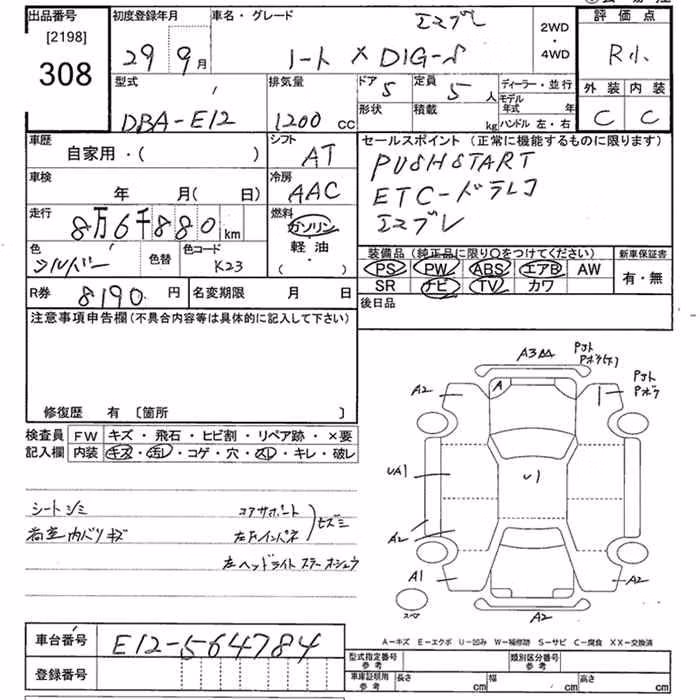 出品番号 [2198] 308
初度登録年月 29 9月
車名・グレード エマブレ
ノート X DIG-S
2WD・4WD
評価点 R小
外装 C 内装 C
型式 DBA-E12
排気量 1200 cc
ドア 5 定員 5人
形状 積載 kg
ディーラー・並行
モデル年式 年
ハンドル 左・右
車歴 自家用・( )
シフト AT
セールスポイント (正常に機能するものに限ります)
PUSHSTART
ETC-ドラレコ
エマブレ
車検 年 月( 日)
冷房 AAC
走行 8万6千880 km
燃料 ガソリン・軽油・( )
色 シルバー 色替 色コード K23
装備品 (純正品に限り○をつけてください)
PS PW ABS エアB AW
SR ナビ TV カワ
新車保証書 有・無
R券 8190円 名変期限 月 日
後日品
注意事項申告欄 (不具合内容等は具体的に記入して下さい)
修復歴 有 〔箇所 〕
検査員記入欄
FW キズ・飛石・ヒビ割・リペア跡・×要
内装 キズ・汚レ・コゲ・穴・スレ・キレ・破レ
シートシミ
内バリキズ
コアサポート
左Fインパネ
左ヘッドライトステーオシュウ
A2 A A2 UA1 U1 A2 A1 A2 A2
スペア
A-キズ E-エクボ U-凹み W-補修跡 S-サビ C-腐食 XX-交換済
車台番号 E12-564784
登録番号
型式指定番号 参考 類別区分番号 参考
車庫証明用 参考 長さ cm 幅 cm 高さ cm